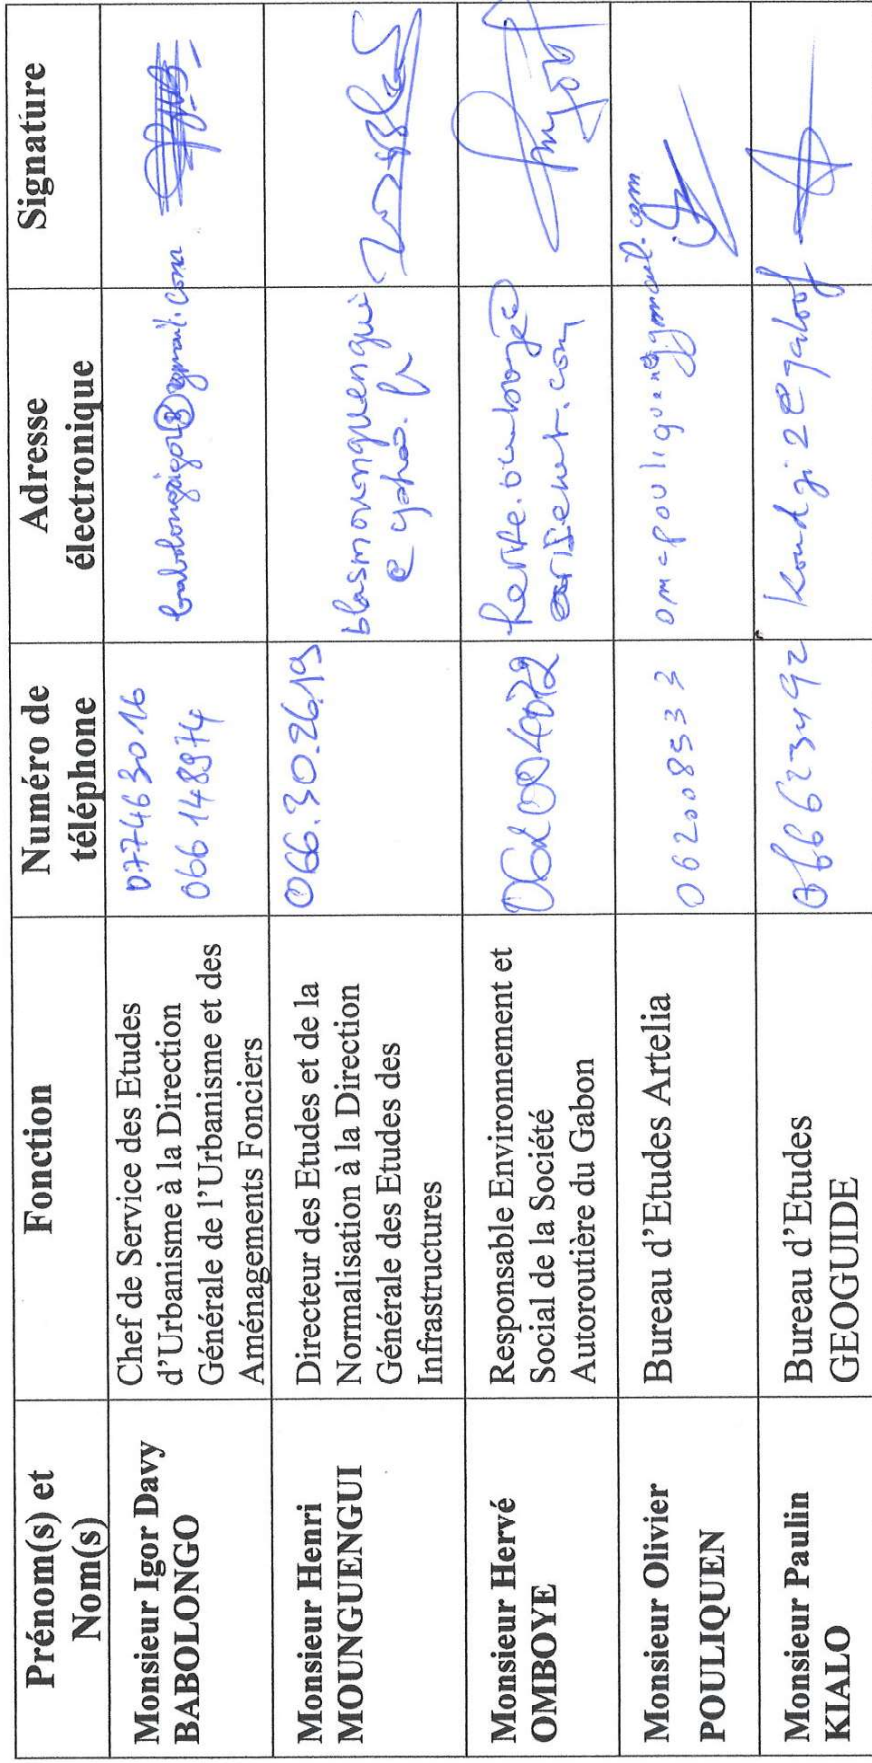 Prénom(s) et
Nom(s)
Fonction
Numéro de
téléphone
Adresse
électronique
Signature
Monsieur Igor Davy
BABOLONGO
Chef de Service des Etudes
d'Urbanisme à la Direction
Générale de l'Urbanisme et des
Aménagements Fonciers
077463016
066148974
Monsieur Henri
MOUNGUENGUI
Directeur des Etudes et de la
Normalisation à la Direction
Générale des Etudes des
Infrastructures
066.30.26.19
blasmounguengui
@ yahoo.fr
Monsieur Hervé
OMBOYE
Responsable Environnement et
Social de la Société
Autoroutière du Gabon
herve.omboye@
arisenet.com
Monsieur Olivier
POULIQUEN
Bureau d'Etudes Artelia
062008533
Monsieur Paulin
KIALO
Bureau d'Etudes
GEOGUIDE
066623492